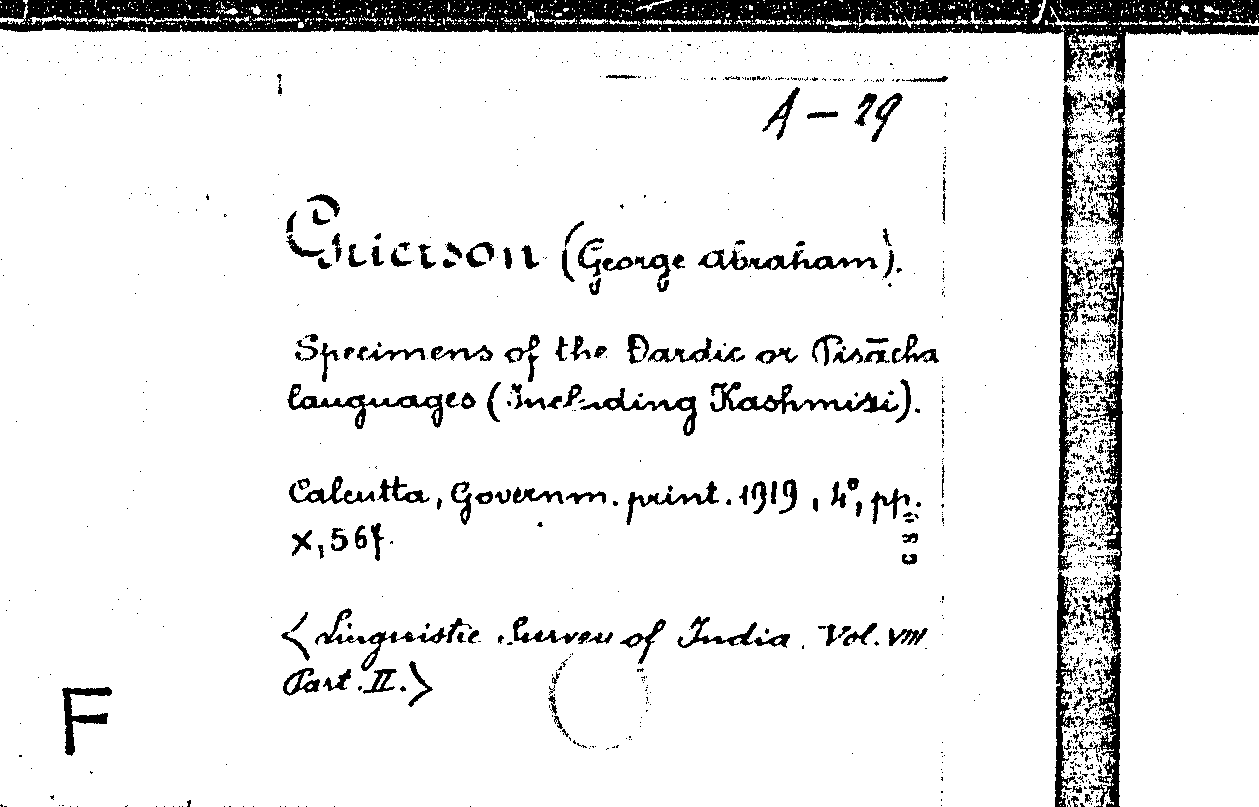 A – 29
Grierson (George Abraham).
Specimens of the Dardic or Pisācha
languages (Including Kashmiri).
Calcutta, Governm. print. 1919, 4°, pp.
X, 567.
<Linguistic Survey of India. Vol. VIII
Part. II.>
F